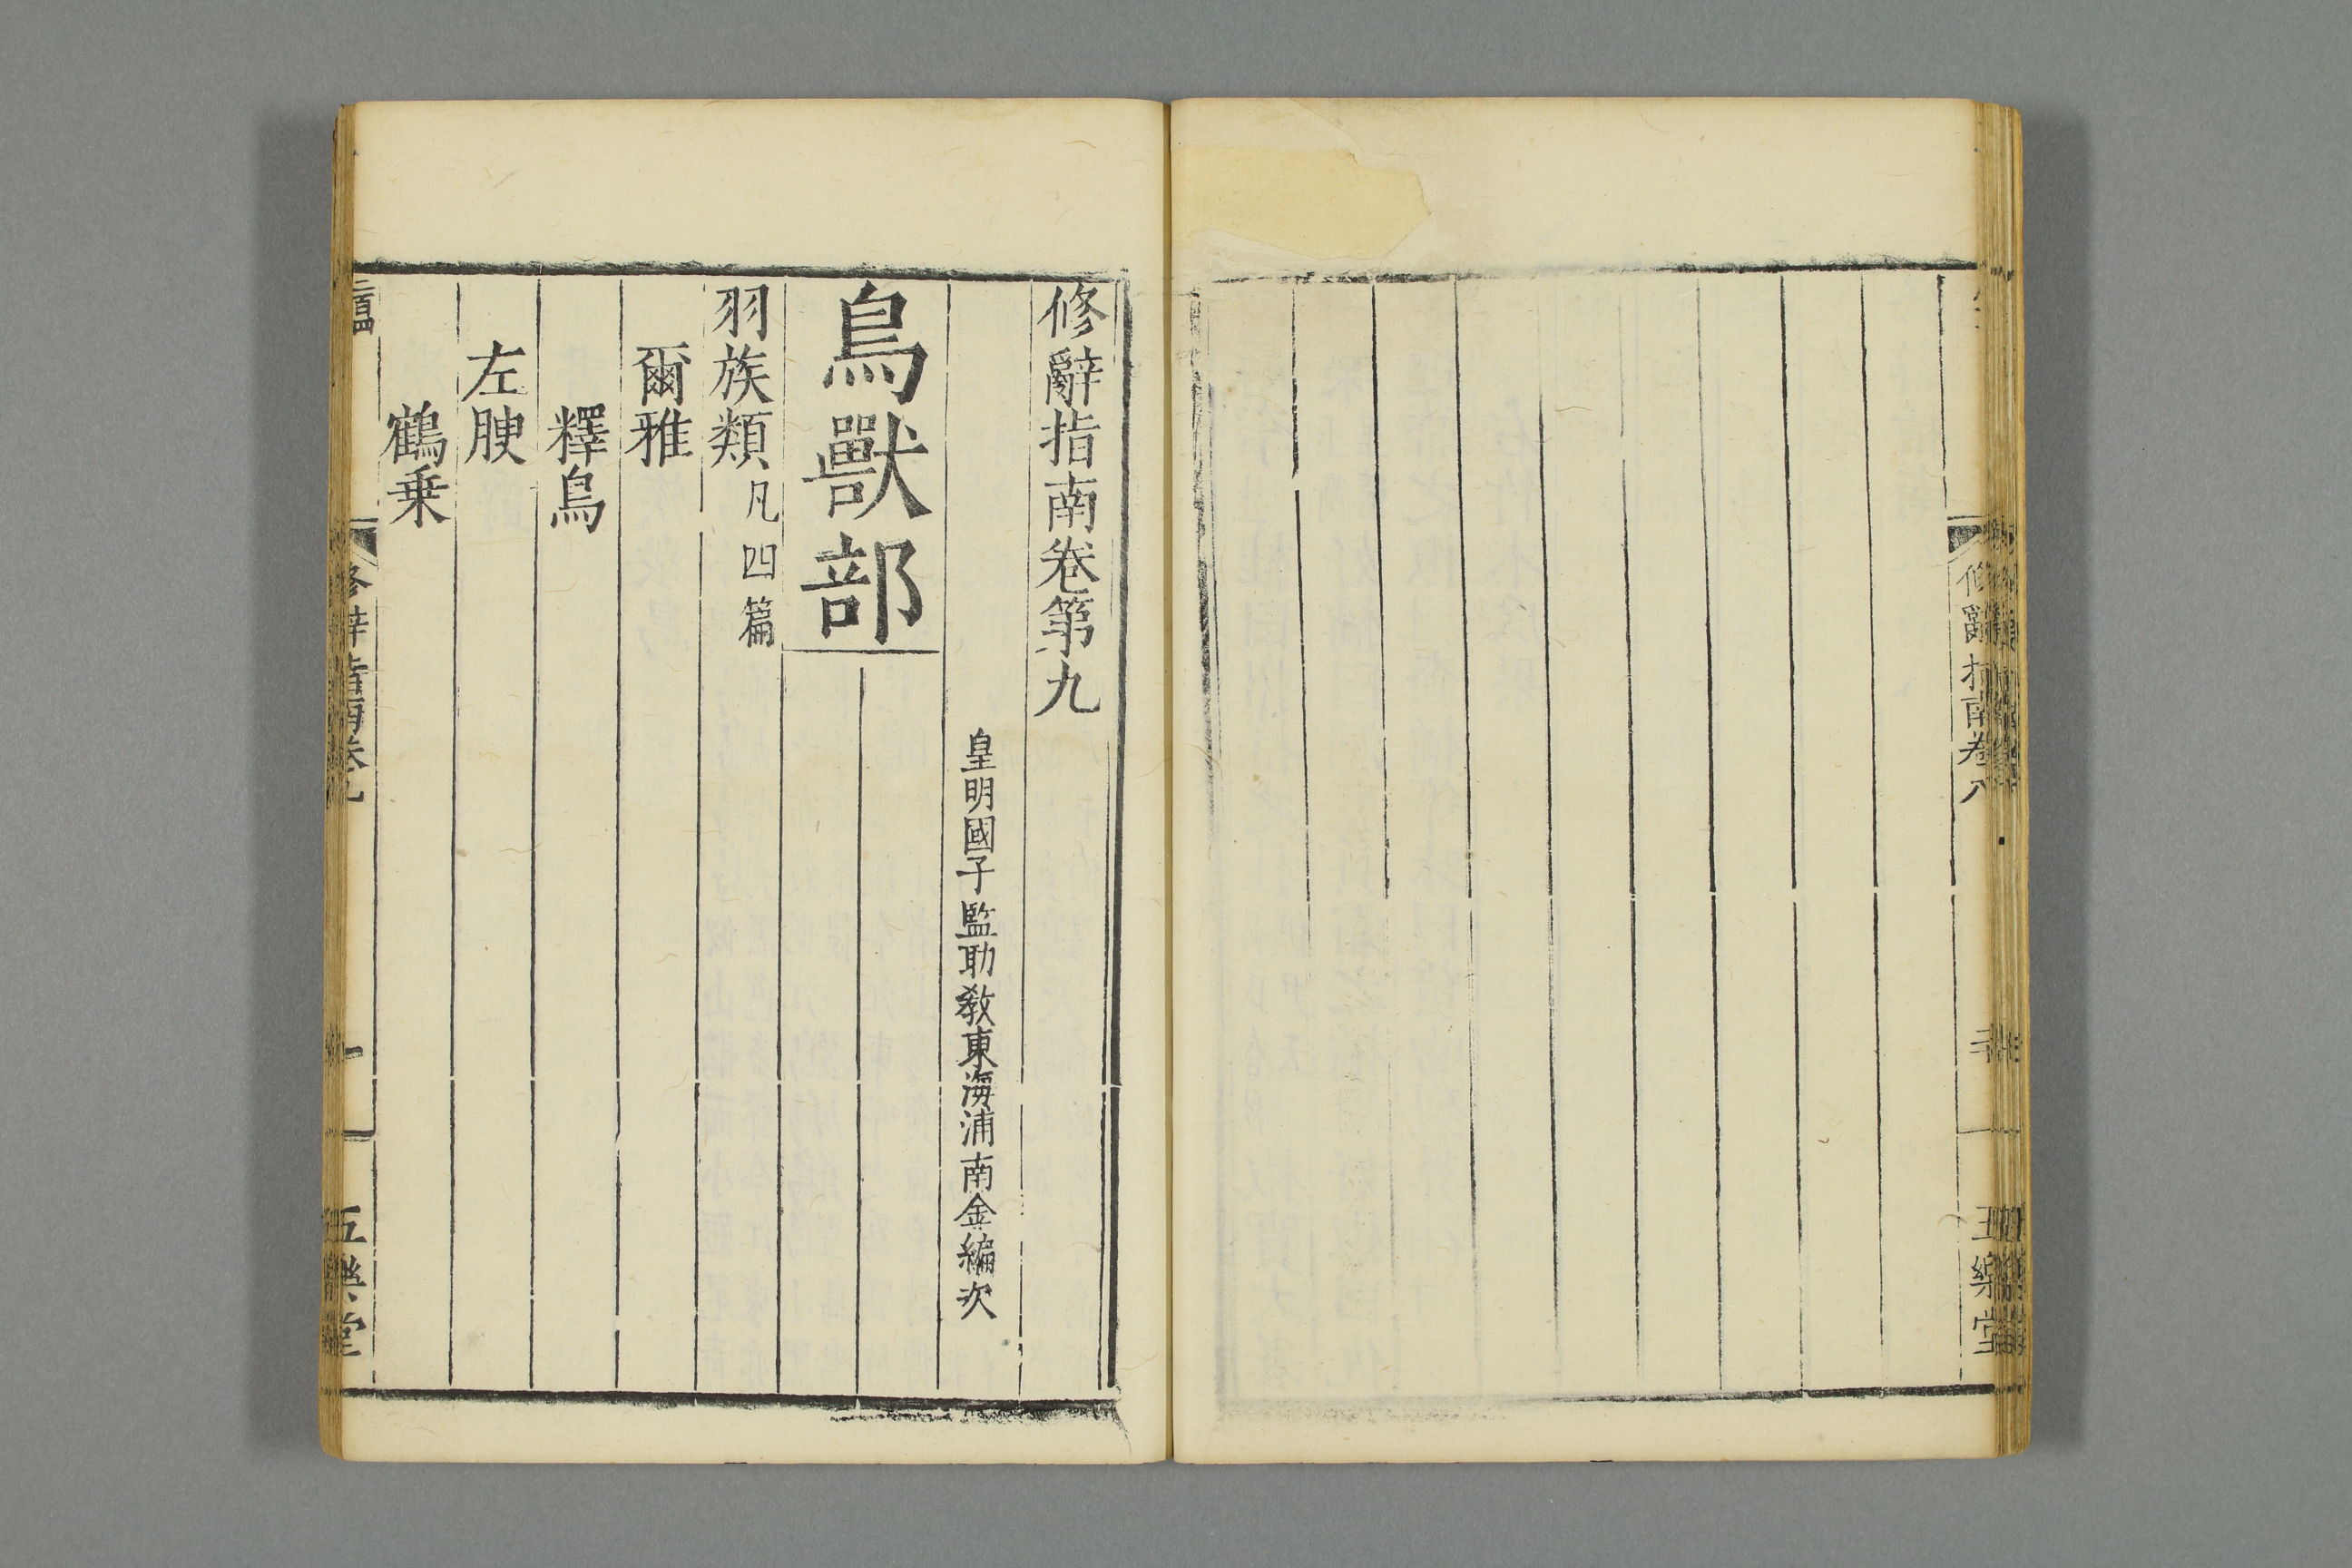 修辭指南卷八
五樂堂
修辭指南卷第九
皇明國子監助教東海浦南金編次
鳥獸部
羽族類 凡四篇
爾雅
釋鳥
左腴
鶴乗
修辭指南卷九
一
五樂堂